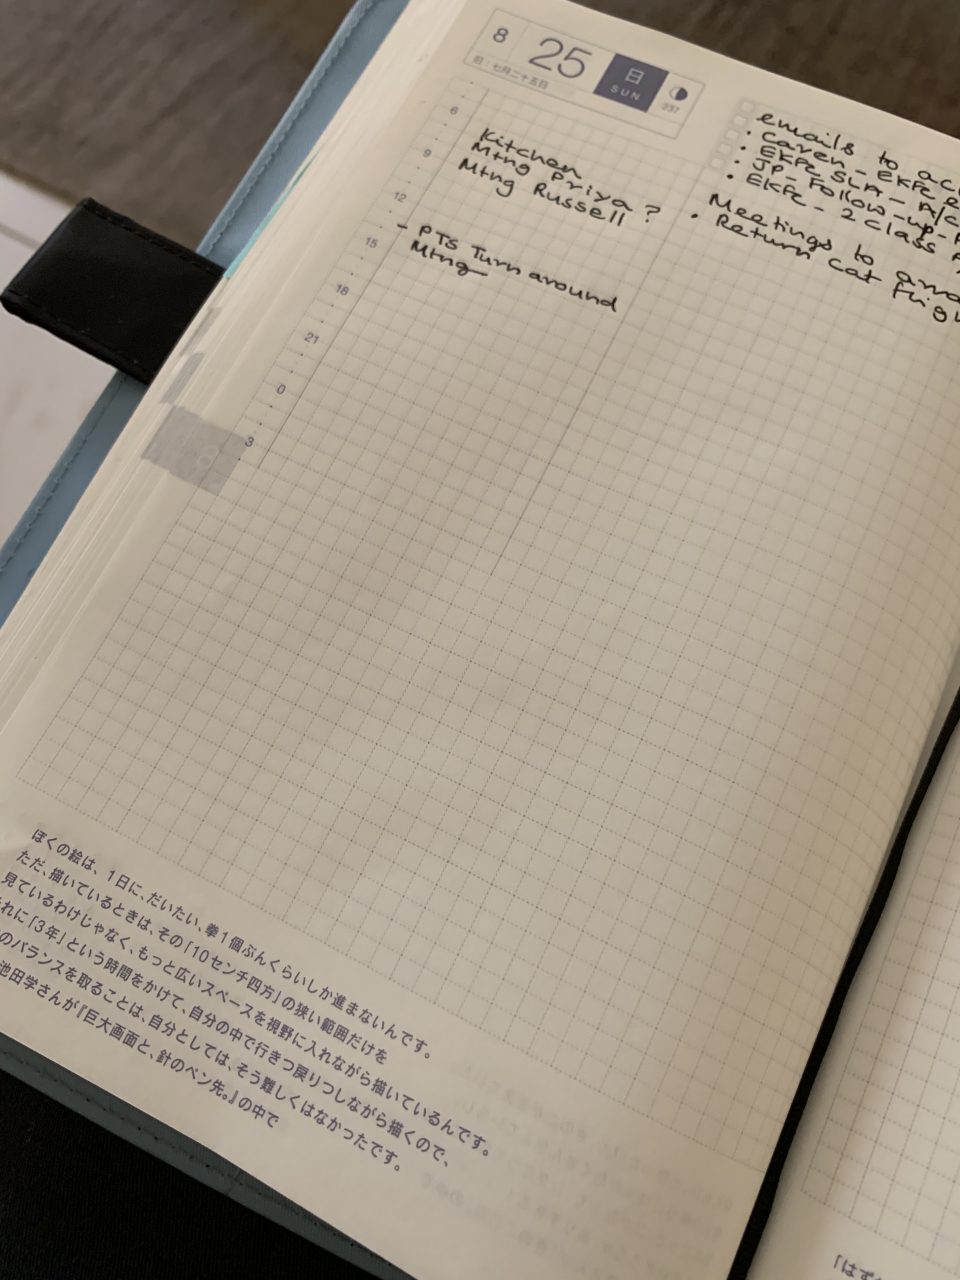 8 25 日 SUN
旧:七月二十五日 237
6
9
12
15
18
21
0
3
Kitchen
Mtng Priya ?
Mtng Russell
- PTs Turn around
Mtng
emails to
• Caren - EKFC
• EKFC SLA - A/C
• JP - Follow-up -
• EKFC - 2 Class
Meetings to
• Return Cat
ぼくの絵は、1日に、だいたい、拳1個ぶんくらいしか進まないんです。
ただ、描いているときは、その「10センチ四方」の狭い範囲だけを
見ているわけじゃなく、もっと広いスペースを視野に入れながら描いているんです。
れに「3年」という時間をかけて、自分の中で行きつ戻りつしながら描くので、
のバランスを取ることは、自分としては、そう難しくはなかったです。
池田学さんが『巨大画面と、針のペン先。』の中で